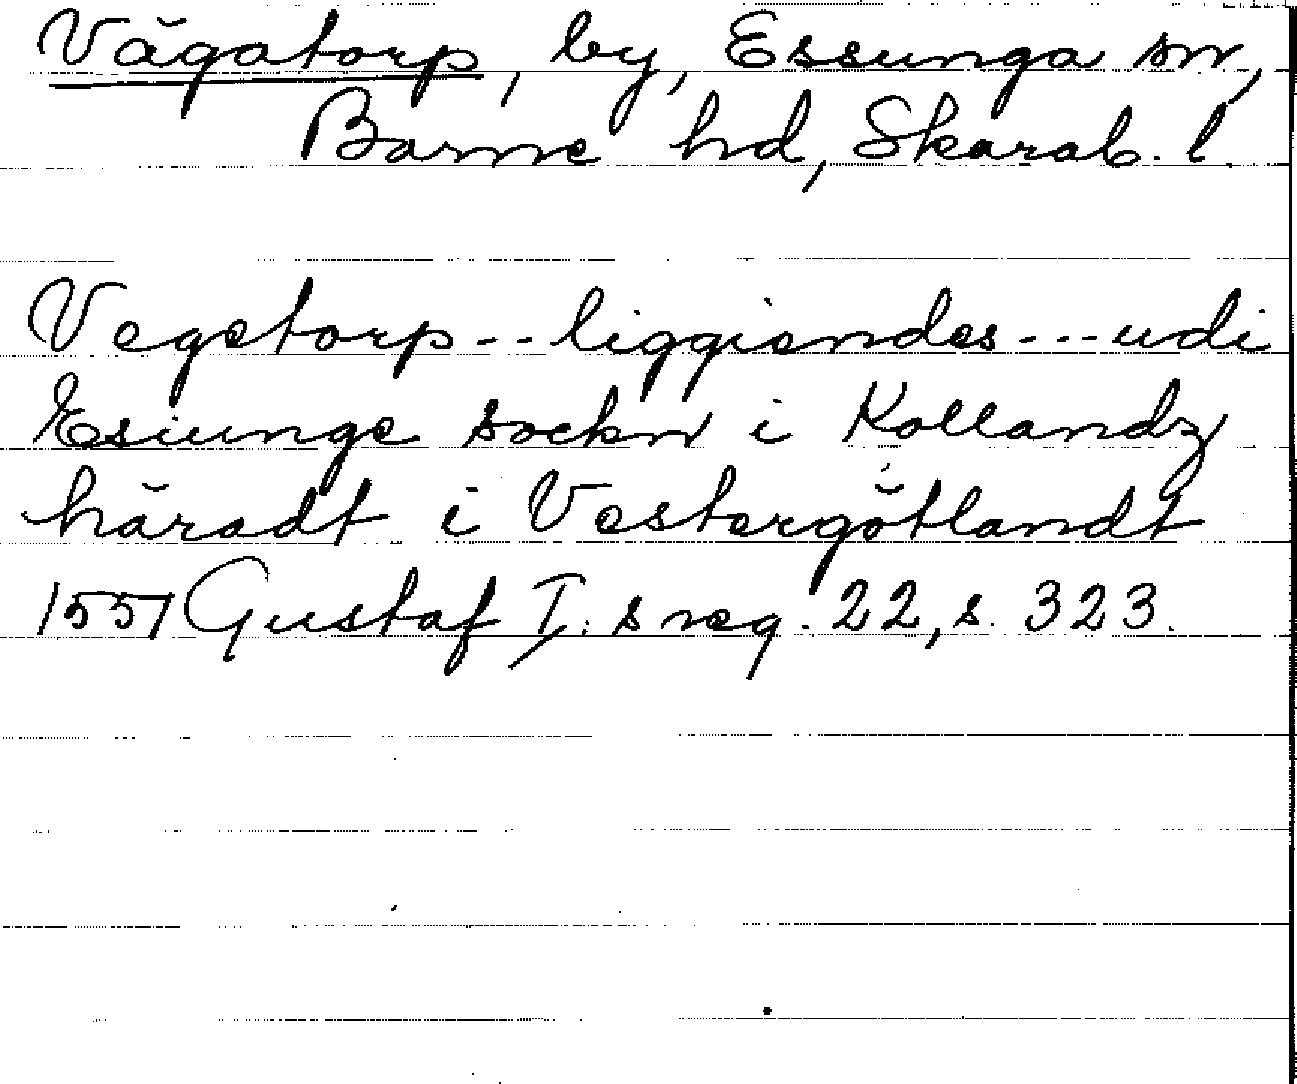 Vägatorp, by, Essunga sn,
Barne hd, Skarab. l.
Vegetorp -- liggiendes --- udi
Esiunge sockn i Kollandz
häradt i Vestergötlandt
1551 Gustaf I:s reg. 22, s. 323.